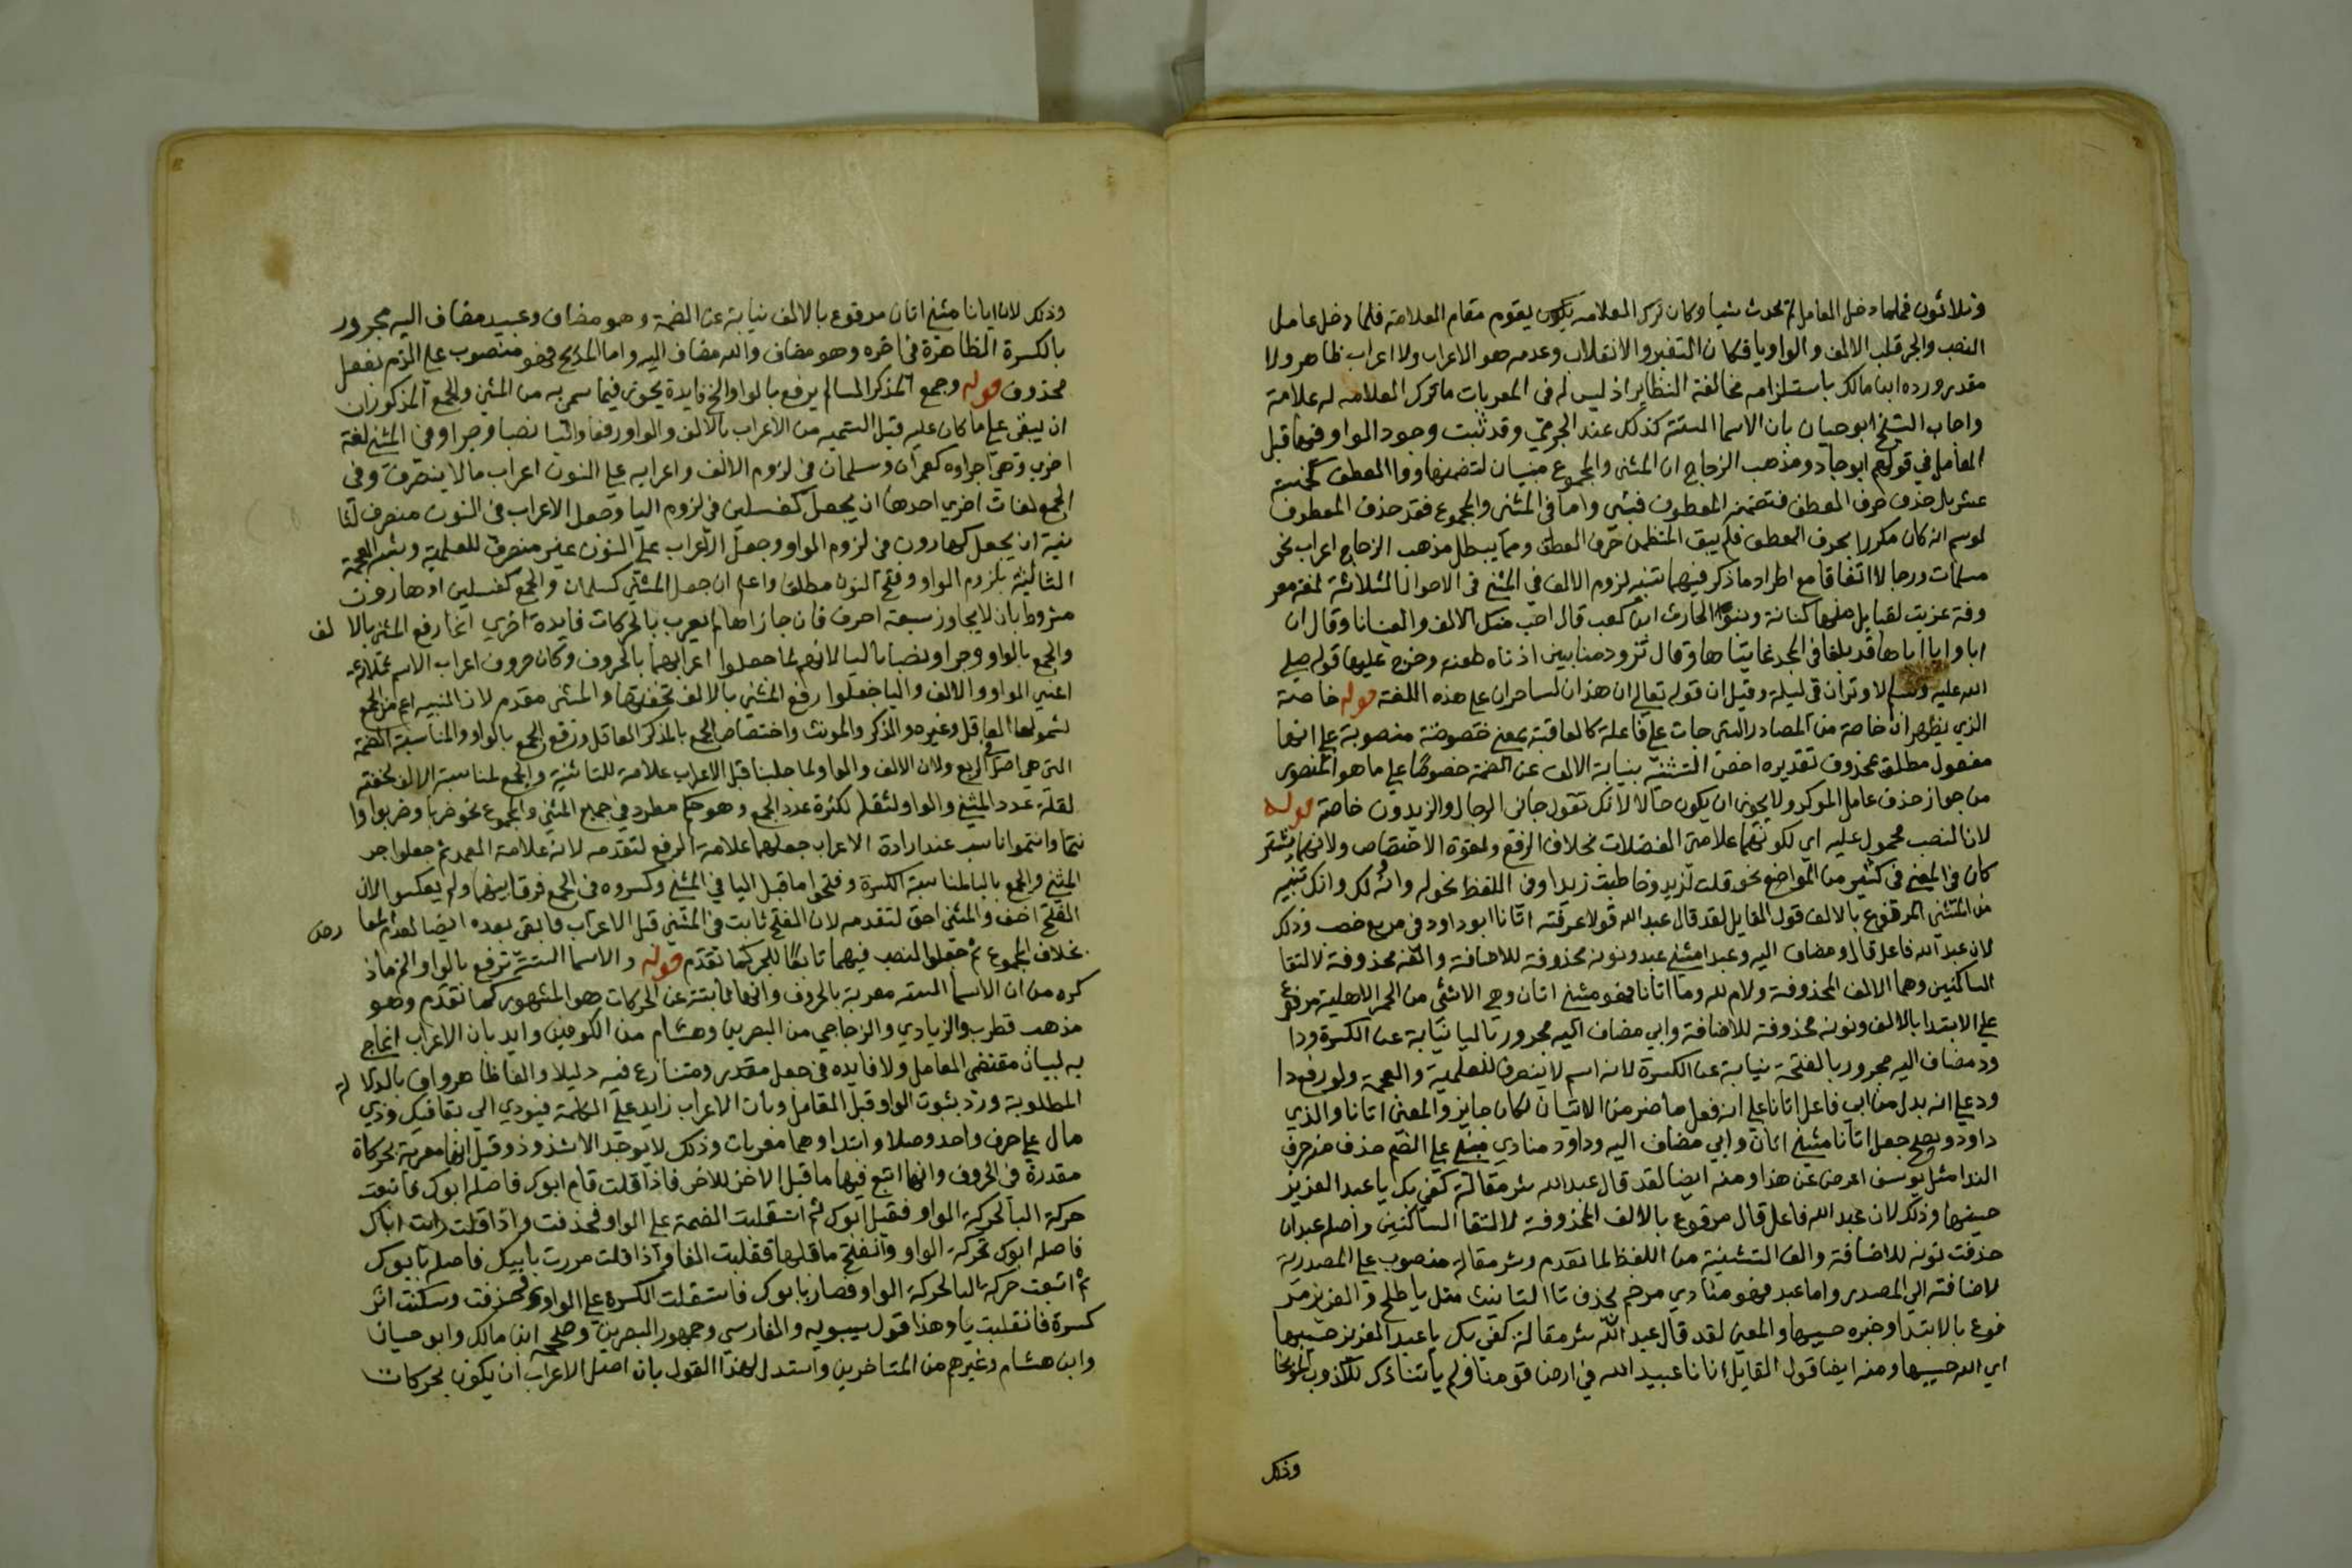 وثلاثون فلما دخل العامل لم يحدث شيا وكان ترك العلامه يقوم مقام العلامة فلما دخل عامل
النصب والجر قلب الالف والواو يا فكان التغير والانقلاب وعدمه هو الاعراب ولا اعراب ظاهر ولا
مقدر ورده ابن مالك باستلزامه مخالفة النظاير اذ ليس له فى المعربات ما ترك العلامه له علامة
واجاب الشيخ ابو حيان بان الاسما الستة كذلك عند الجرمي وقد ثبت وجود الواو فيها قبل
العامل في قولهم ابو جاد ومذهب الزجاج ان المثنى والمجموع مبنيان لتضمنهما واو العطف كخمسة
عشر بل حذف حرف العطف فتضمنه المعطوف فبني واما فى المثنى والمجموع فقد حذف المعطوف
لو سم انه كان مكررا بحرف العطف فلم يبق المتضمن حرف العطف ومما يبطل مذهب الزجاج اعراب نحو
مسلمات ورجالا اتفاقا مع اطراد ما ذكر فيهما تنبيه لزوم الالف في المثنى فى الاحوال الثلاثة لغة معر
وفة عزيت لقبايل منها كنانة وبنوا الحارث ابن كعب قال احب منك الالف والعينانا وقال ان
اباها وابا اباها قد بلغا فى المجد غايتاها وقال تزود منا بين اذناه طعنه وخرج عليها قوله صلى
الله عليه وسلم لا وتران في ليلة وقيل ان قوله تعالى ان هذان لساحران على هذه اللغة قوله خاصة
الذي يظهر ان خاصة من المصادر التى جات على فاعلة كالعاقبة بمعنى خصوصة منصوبة على انها
مفعول مطلق بمحذوف تقديره اخص التثنية بنيابة الالف عن الضمة خصوصا على ما هو المنصور
من جواز حذف عامل الموكد ولا يجوز ان يكون حالا لانك تقول جانى الرجال والزيدون خاصة قوله
لان النصب محمول عليه اي لكونهما علامتى الفضلات بخلاف الرفع ولقوة الاختصاص ولانهما يشتر
كان فى المعنى فى كثير من المواضع نحو قلت لزيد وخاطبت زيدا وفى اللفظ نحو له وانه لك وانك تنبيه
من المثنى المرفوع بالالف قول القايل لقد قال عبد الله قولا عرفته اتانا ابو داود فى مربع خصب وذلك
لان عبد الله فاعل قال ومضاف اليه وعبدا مثنى عبد ونونه محذوفة للاضافة والفه محذوفة لالتقا
الساكنين وهما الالف المحذوفة ولام لله وما اتانا فهو مثنى اتان وهى الانثى من الحمر الاهلية مرفوع
على الابتدا بالالف ونونه محذوفة للاضافة وابي مضاف اليه مجرور باليا نيابة عن الكسرة ودا
ود مضاف اليه مجرور بالفتحة نيابة عن الكسرة لانه اسم لا ينصرف للعلمية والعجمة ولو رفع دا
ود على انه بدل من ابى فاعل اتانا على انه فعل ماض من الاتيان لكان جايز والمعنى اتانا والذي
داود ويصح جعل اتانا مثنى اتان وابي مضاف اليه وداود منادى مبنى على الضم حذف منه حرف
الندا مثل يوسف اعرض عن هذا ومنه ايضا لقد قال عبد الله شر مقالة كفى بك يا عبد العزيز
حسيبها وذلك لان عبد الله فاعل قال مرفوع بالالف المحذوفة لالتقا الساكنين واصله عبدان
حذفت نونه للاضافة والف التثنية من اللفظ لما تقدم وشر مقالة منصوب على المصدرية
لاضافته الى المصدر واما عبد فهو منادي مرخم بحذف تا التانيث مثل يا طلح والعزيز مر
فوع بالابتدا وخبره حسيبها والمعنى لقد قال عبد الله شر مقالة كفى بك يا عبد العزيز حسيبها
اي الله حسيبها ومنه ايضا قول القايل انانا عبيد الله في ارض قومنا ولم ياتنا
وذلك
وذلك لان اتانا مثنى اتان مرفوع بالالف نيابة عن الضمة وهو مضاف وعبيد مضاف اليه مجرور
بالكسرة الظاهرة فى اخره وهو مضاف والله مضاف اليه واما فهو منصوب على الذم بفعل
محذوف قوله وجمع المذكر السالم يرفع بالواو الخ فايدة يجوز فيما سمى به من المثنى والجمع المذكوران
ان يبقى على ما كان عليه قبل التسميه من الاعراب بالالف والواو رفعا واليا نصبا وجرا وفى المثنى لغة
اخرى وهى اجراوه كعمران وسلمان فى لزوم الالف واعرابه على النون اعراب ما لا ينصرف وفى
الجمع لغات اخرى احدها ان يجعل كغسلين فى لزوم اليا وجعل الاعراب فى النون منصرف الثا
نية ان يجعل كهارون فى لزوم الواو وجعل الاعراب على النون غير منصرف للعلمية وشبه العجمة
الثالثة بلزوم الواو وفتح النون مطلقا واعلم ان جعل المثنى كسلمان والجمع كغسلين او هارون
مشروط بان لا يجاوز سبعة احرف فان جازاها لم يعرب بالحركات فايدة اخري انما رفع المثنى بالا لف
والجمع بالواو وجرا ونصبا باليا لانهم لما جعلوا اعرابهما بالحروف وكان حروف اعراب الاسم ثلاثه
اعنى الواو والالف واليا جعلوا رفع المثنى بالالف لخفتها والمثنى مقدم لان التثنيه اعم من الجمع
لشمولها العاقل وغيره والمذكر والمونث واختصاص الجمع بالمذكر العاقل ورفع الجمع بالواو والمناسبة الضمة
التى هى اصل فى الرفع ولان الالف والواو لما جلبتا قبل الاعراب علامة للتثنية والجمع لمناسبة الالف لخفته
لقلة عدد المثنى والواو لثقله لكثرة عدد الجمع وهو حكم مطرد فى جميع المثنى والمجموع نحو ضربا وضربوا وا
نتما وانتموا ناسب عند ارادة الاعراب جعلهما علامة الرفع لتقدمه لانه علامة العمد ثم جعلوا جر
المثنى والجمع باليا لمناسبة الكسرة وفتحوا ما قبل اليا في المثنى وكسروه فى الجمع فرقا بينهما ولم يعكسوا لان
الفتح اخف والمثنى احق لتقدمه لان الفتح ثابت فى المثنى قبل الاعراب فابقى بعده ايضا
بخلاف المجموع ثم جعلوا النصب فيهما تابعا للجر كما تقدم قوله والاسما الستة ترفع بالواو الخ ما ذ
كره من ان الاسما السته معربة بالحروف وانها نابتة عن الحركات هو المشهور كما تقدم وهو
مذهب قطرب والزيادي والزجاجي من البصرين وهشام من الكوفيين وايد بان الاعراب انما جى
به لبيان مقتضى العامل ولا فايده فى جعل مقدر ومتنازع فيه دليلا والغا ظاهر واف بالدلا له
المطلوبة ورد بثبوت الواو قبل العامل وبان الاعراب زايد على الكلمة فيودي الى بقا فيك وذي
مال على حرف واحد وصلا وابتدا وهما معربات وذلك لا يوجد الا شذوذ وقيل انها معربة بحركاة
مقدرة فى الحروف وانها اتبع فيها ما قبل الاخر للاخر فاذا قلت قام ابوك فاصله ابوك فاتبعت
حركة البا لحركة الواو فقيل ابوك ثم استقلت الضمة على الواو فحذفت واذا قلت رايت اباك
فاصله ابوك تحركة الواو وانفتح ما قبلها فقلبت الفا واذا قلت مررت بابيك فاصله بابوك
ثم اتبعت حركة البا لحركة الواو فصار بابوك فاستقلت الكسرة على الواو فحذفت وسكنت اثر
كسرة فانقلبت يا وهذا قول سيبويه والفارسي وجمهور البصرين وصححه ابن مالك وابو حيان
وابن هشام وغيرهم من المتاخرين واستدل لهذا القول بان اصل الاعراب ان يكون بحركات